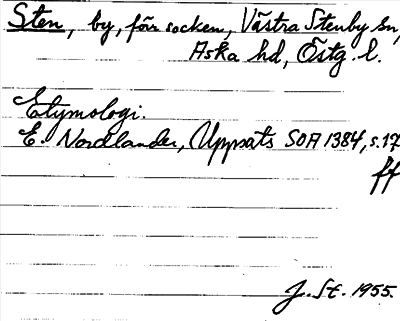 Sten, by, förr socken, Västra Stenby sn,
Aska hd, Östg. l.
Etymologi.
E. Nordlander, Uppsats SOA 1384, s. 17
ff
J. St. 1955.